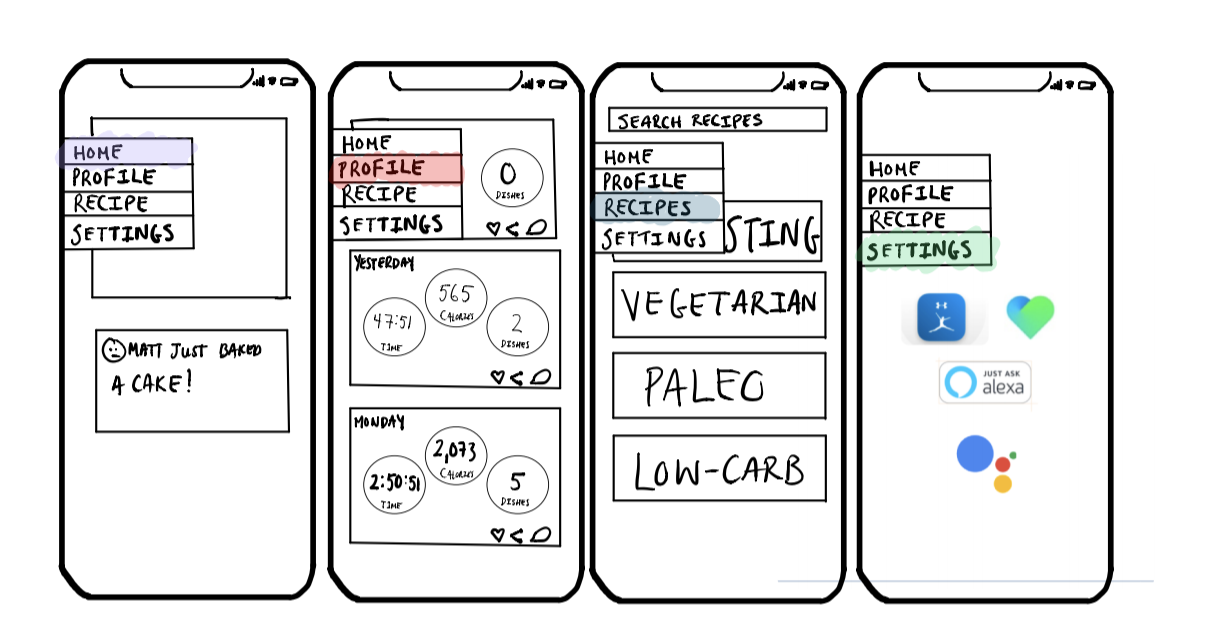 HOME
PROFILE
RECIPE
SETTINGS
MATT JUST BAKED
A CAKE!
HOME
PROFILE
RECIPE
SETTINGS
0
DISHES
YESTERDAY
565
CALORIES
47:51
TIME
2
DISHES
MONDAY
2,073
CALORIES
2:50:51
TIME
5
DISHES
SEARCH RECIPES
HOME
PROFILE
RECIPES
SETTINGS
STING
VEGETARIAN
PALEO
LOW-CARB
HOME
PROFILE
RECIPE
SETTINGS
JUST ASK
alexa